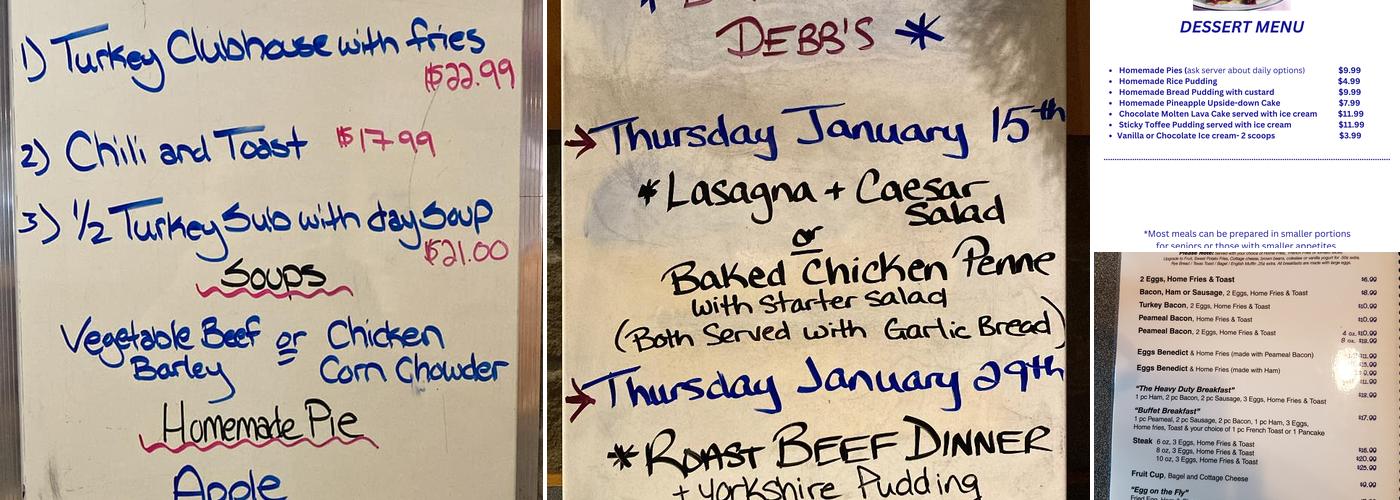 1) Turkey Clubhouse with fries
$22.99
2) Chili and Toast $17.99
3) 1/2 Turkey Sub with day Soup
$21.00
Soups
Vegetable Beef or Chicken
Barley Corn Chowder
Homemade Pie
Apple
DEBB'S *
→ Thursday January 15th
* Lasagna + Caesar
Salad
or
Baked Chicken Penne
with Starter Salad
(Both Served with Garlic Bread)
→ Thursday January 29th
* ROAST BEEF DINNER
+ Yorkshire Pudding
DESSERT MENU
• Homemade Pies (ask server about daily options) $9.99
• Homemade Rice Pudding $4.99
• Homemade Bread Pudding with custard $9.99
• Homemade Pineapple Upside-down Cake $7.99
• Chocolate Molten Lava Cake served with ice cream $11.99
• Sticky Toffee Pudding served with ice cream $11.99
• Vanilla or Chocolate Ice cream- 2 scoops $3.99
*Most meals can be prepared in smaller portions
for seniors or those with smaller appetites
2 Eggs, Home Fries & Toast
Bacon, Ham or Sausage, 2 Eggs, Home Fries & Toast
Turkey Bacon, 2 Eggs, Home Fries & Toast
Peameal Bacon, Home Fries & Toast
Peameal Bacon, 2 Eggs, Home Fries & Toast 4 oz.
8 oz.
Eggs Benedict & Home Fries (made with Peameal Bacon)
Eggs Benedict & Home Fries (made with Ham)
"The Heavy Duty Breakfast"
1 pc Ham, 2 pc Bacon, 2 pc Sausage, 3 Eggs, Home Fries & Toast
"Buffet Breakfast"
1 pc Peameal, 2 pc Sausage, 2 pc Bacon, 1 pc Ham, 3 Eggs,
Home fries, Toast & your choice of 1 pc French Toast or 1 Pancake
Steak 6 oz, 3 Eggs, Home Fries & Toast
8 oz, 3 Eggs, Home Fries & Toast
10 oz, 3 Eggs, Home Fries & Toast
Fruit Cup, Bagel and Cottage Cheese
"Egg on the Fly"